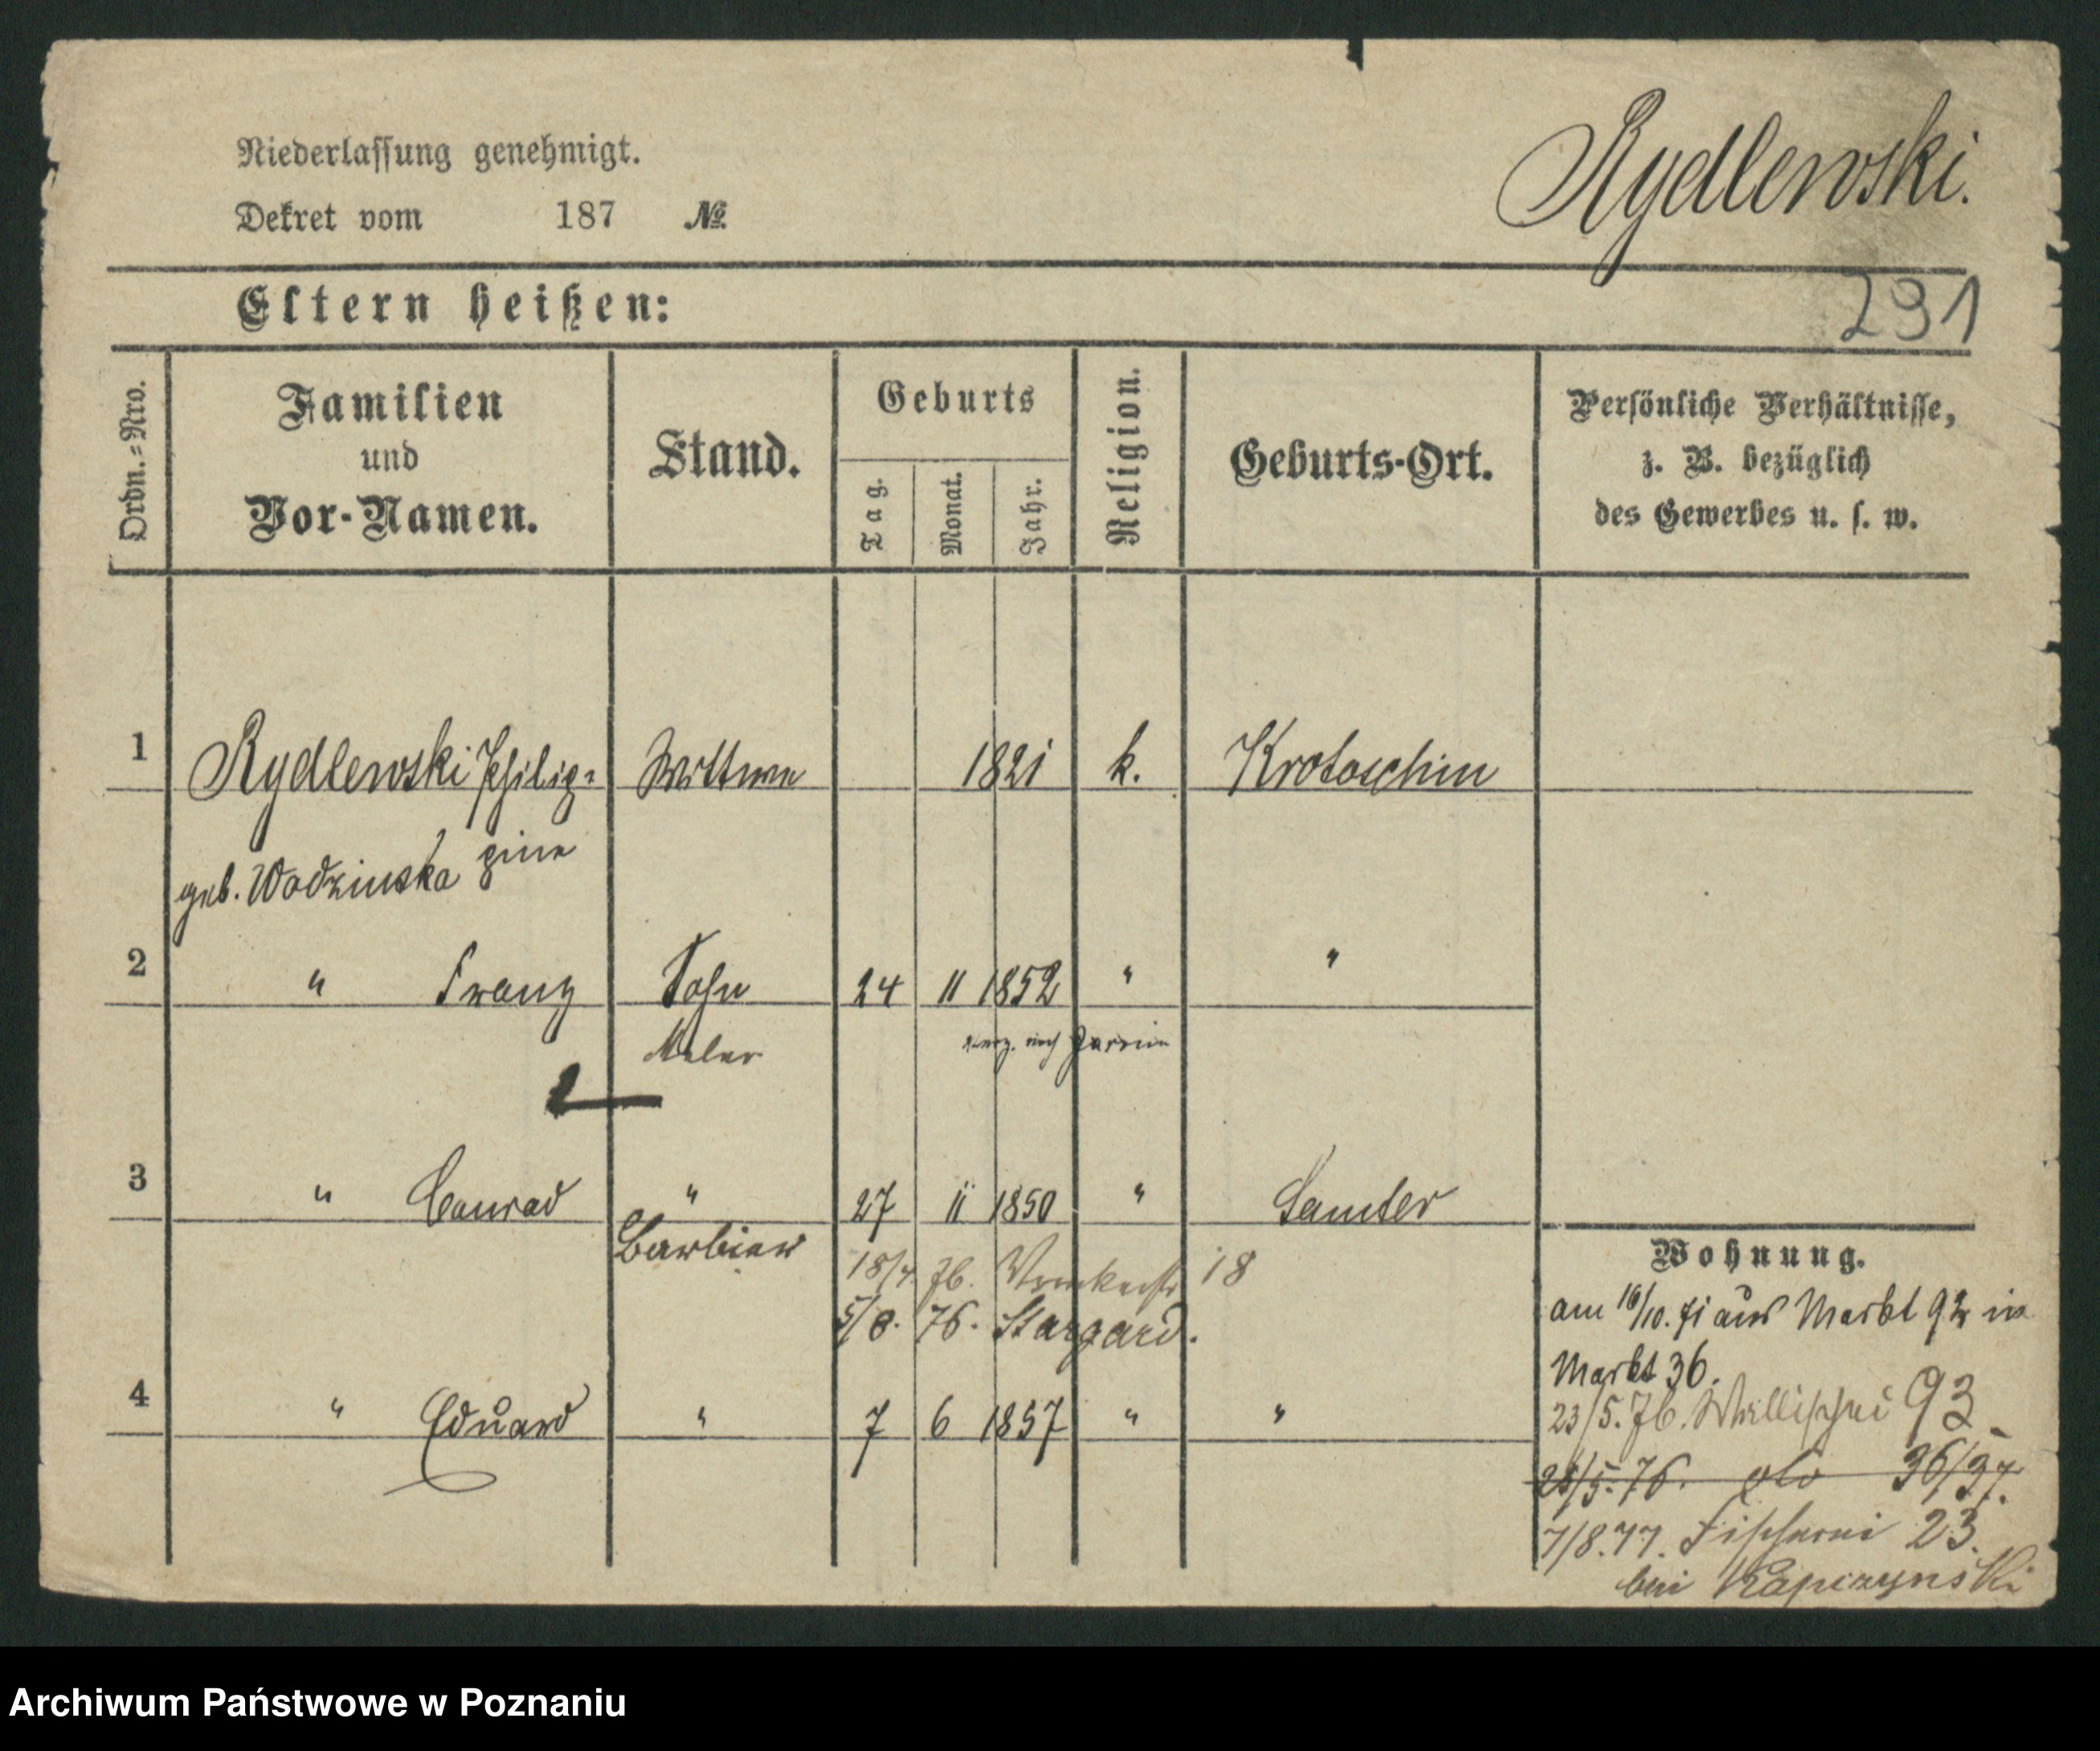 Niederlassung genehmigt.
Dekret vom 187 №
Rydlewski.
Eltern heißen:
291
Ordn.-Nro.
Familien
und
Vor-Namen.
Stand.
Geburts
Tag.
Monat.
Jahr.
Religion.
Geburts-Ort.
Persönliche Verhältnisse,
z. B. bezüglich
des Gewerbes u. s. w.
1 Rydlewski Philip= Wittwe 1821 k. Krotoschin
pine
geb. Wodzinska
2 " Franz Sohn 24 11 1852 " "
Maler nach
3 " Conrad " 27 11 1850 " Samter
Barbier
18/4. 76. 18
5/8. 76. Stargard.
4 " Eduard " 7 6 1857 " "
Wohnung.
am 16/10. 71 aus Markt 92 in
Markt 36.
23/5. 76. Wallischei 93
28/5. 76. 36/37.
7/8. 77. Fischerei 23.
bei Kapczynski
Archiwum Państwowe w Poznaniu